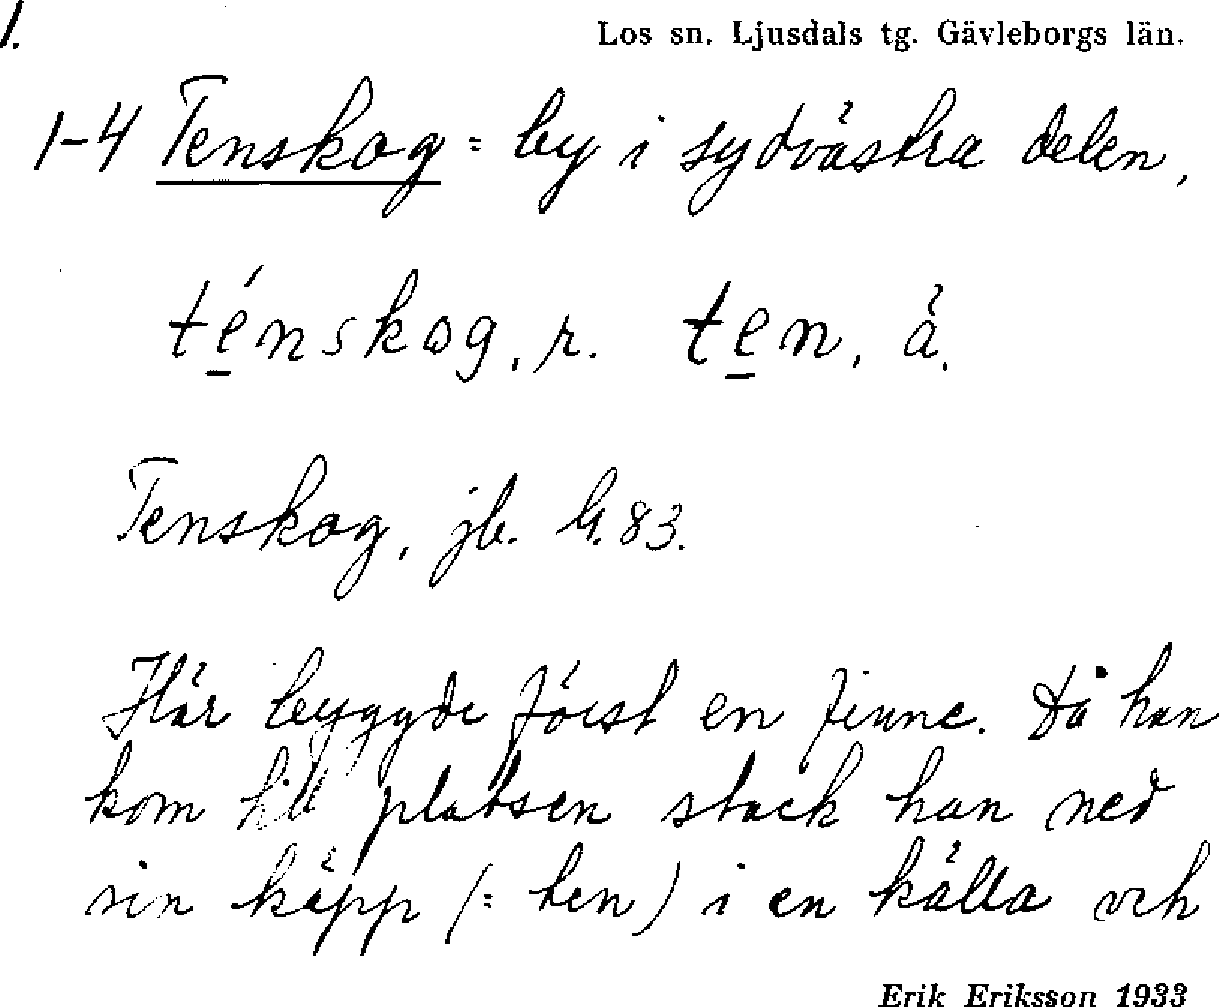 1.
Los sn. Ljusdals tg. Gävleborgs län.
1-4 Tenskog = by i sydvästra delen.
té̱nskog, r. te̱n, å.
Tenskog, jb. G. 83.
Här byggde först en finne. Då han
kom till platsen stack han ned
sin käpp (= ten) i en källa och
Erik Eriksson 1933